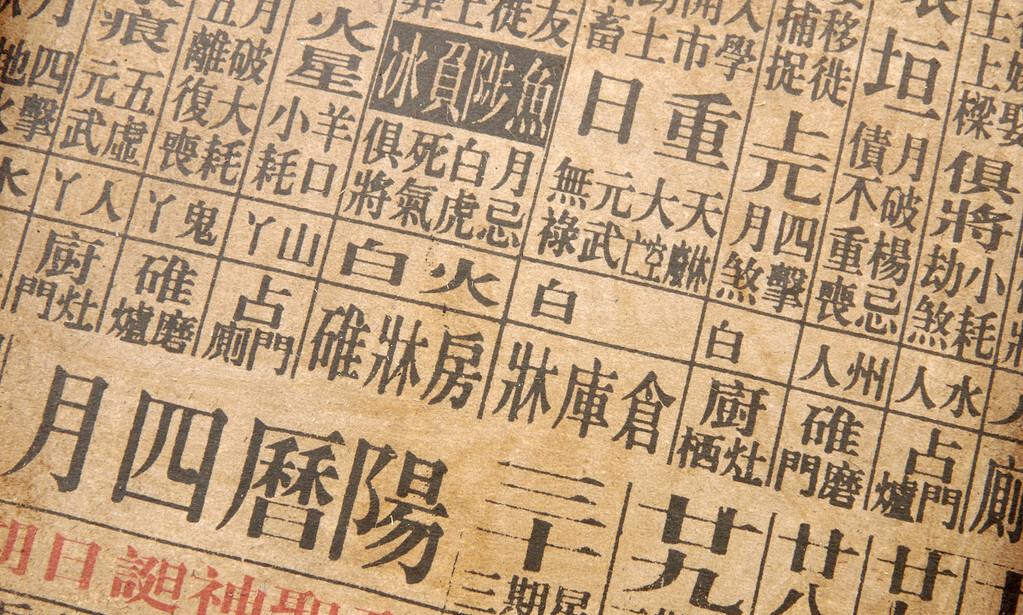 上樑
嫁娶
俱將
小耗
劫煞
水人
占門爐
垣
月破
楊忌
債不
重喪
州人
碓磨門
廿八
移徙
捕捉
上兀
四擊
月煞
白
廚灶栖
廿九
入學
開市
動土
重日
天
大
元武
無祿
白
倉庫牀
三十
星期三
魚陟負冰
月忌
白虎
死氣
俱將
火白
房牀碓
火星
羊口
小耗
山丫
占門廁
月破
大耗
離
復喪
鬼丫
碓磨爐
痕
五虛
元武
人丫
廚灶門
四擊
地火
水
陽曆四月
聖神誕日期